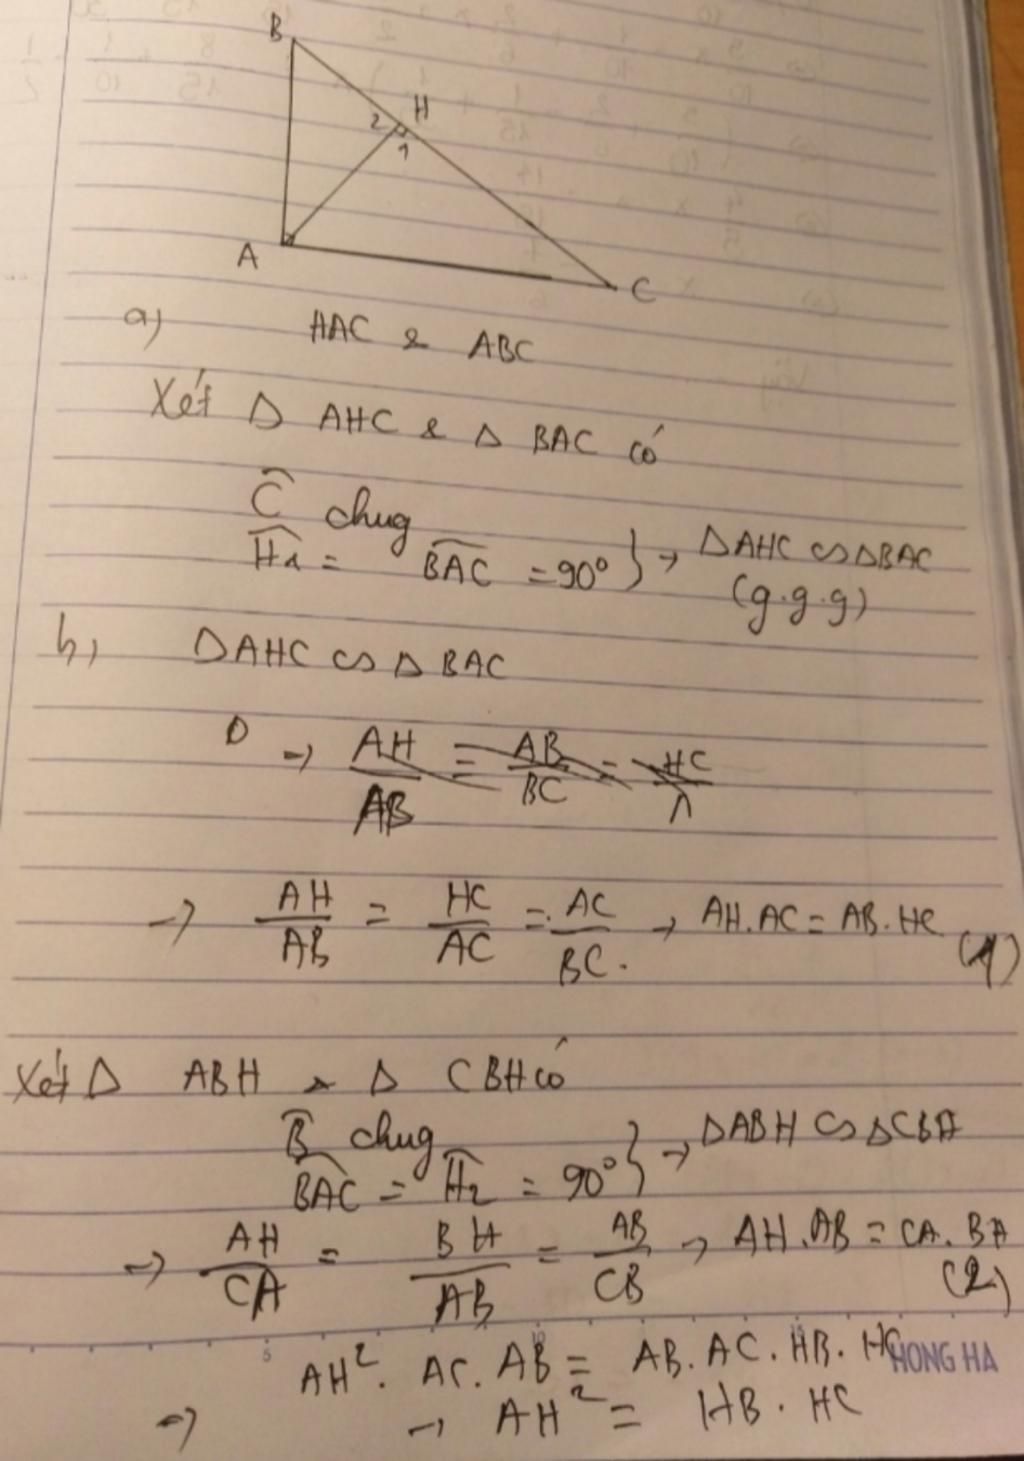 B
H
2
1
A
C
a) HAC & ABC
Xét Δ AHC & Δ BAC có
Ĉ chug
Ĥ1 = BAC = 90° } → ΔAHC ∽ ΔBAC
(g.g.g)
b, ΔAHC ∽ Δ BAC
→ AH/AB = AB/BC = HC/A
→ AH/AB = HC/AC = AC/BC. → AH.AC = AB.HC (1)
Xét Δ ABH & Δ CBH có
B̂ chug
BAC = Ĥ2 = 90° } → ΔABH ∽ ΔCBA
→ AH/CA = BH/AB = AB/CB → AH.AB = CA.BA (2)
AH². AC. AB = AB. AC. HB. HC
HONG HA
→ → AH² = HB. HC